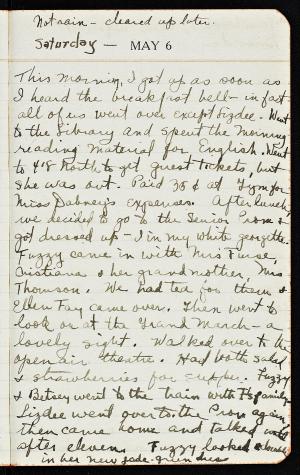 Not rain - cleared up later.
Saturday — MAY 6
This morning, I got up as soon as
I heard the breakfast bell - in fact
all of us went over except Lizdee. Went
to the Library and spent the morning
reading material for English. Went
to 418 North to get guest tickets, but
she was out. Paid 38¢ at Gym for
Miss Dabney's expenses. After lunch,
we decided to go to the Senior Prom &
got dressed up - I in my white georgette.
Fuzzy came in with Mrs Furse,
Cristiana & her grandmother, Mrs
Thomson. We had tea for them &
Ellen Fay came over. Then went to
look on at the Grand March - a
lovely sight. Walked over to the
open air theatre. Had both salad
& strawberries for supper. Fuzzy
& Betsey went to the train with the family
Lizdee went over to the Prom again
then came home and talked until
after eleven. Fuzzy looked
in her new jade-green dress